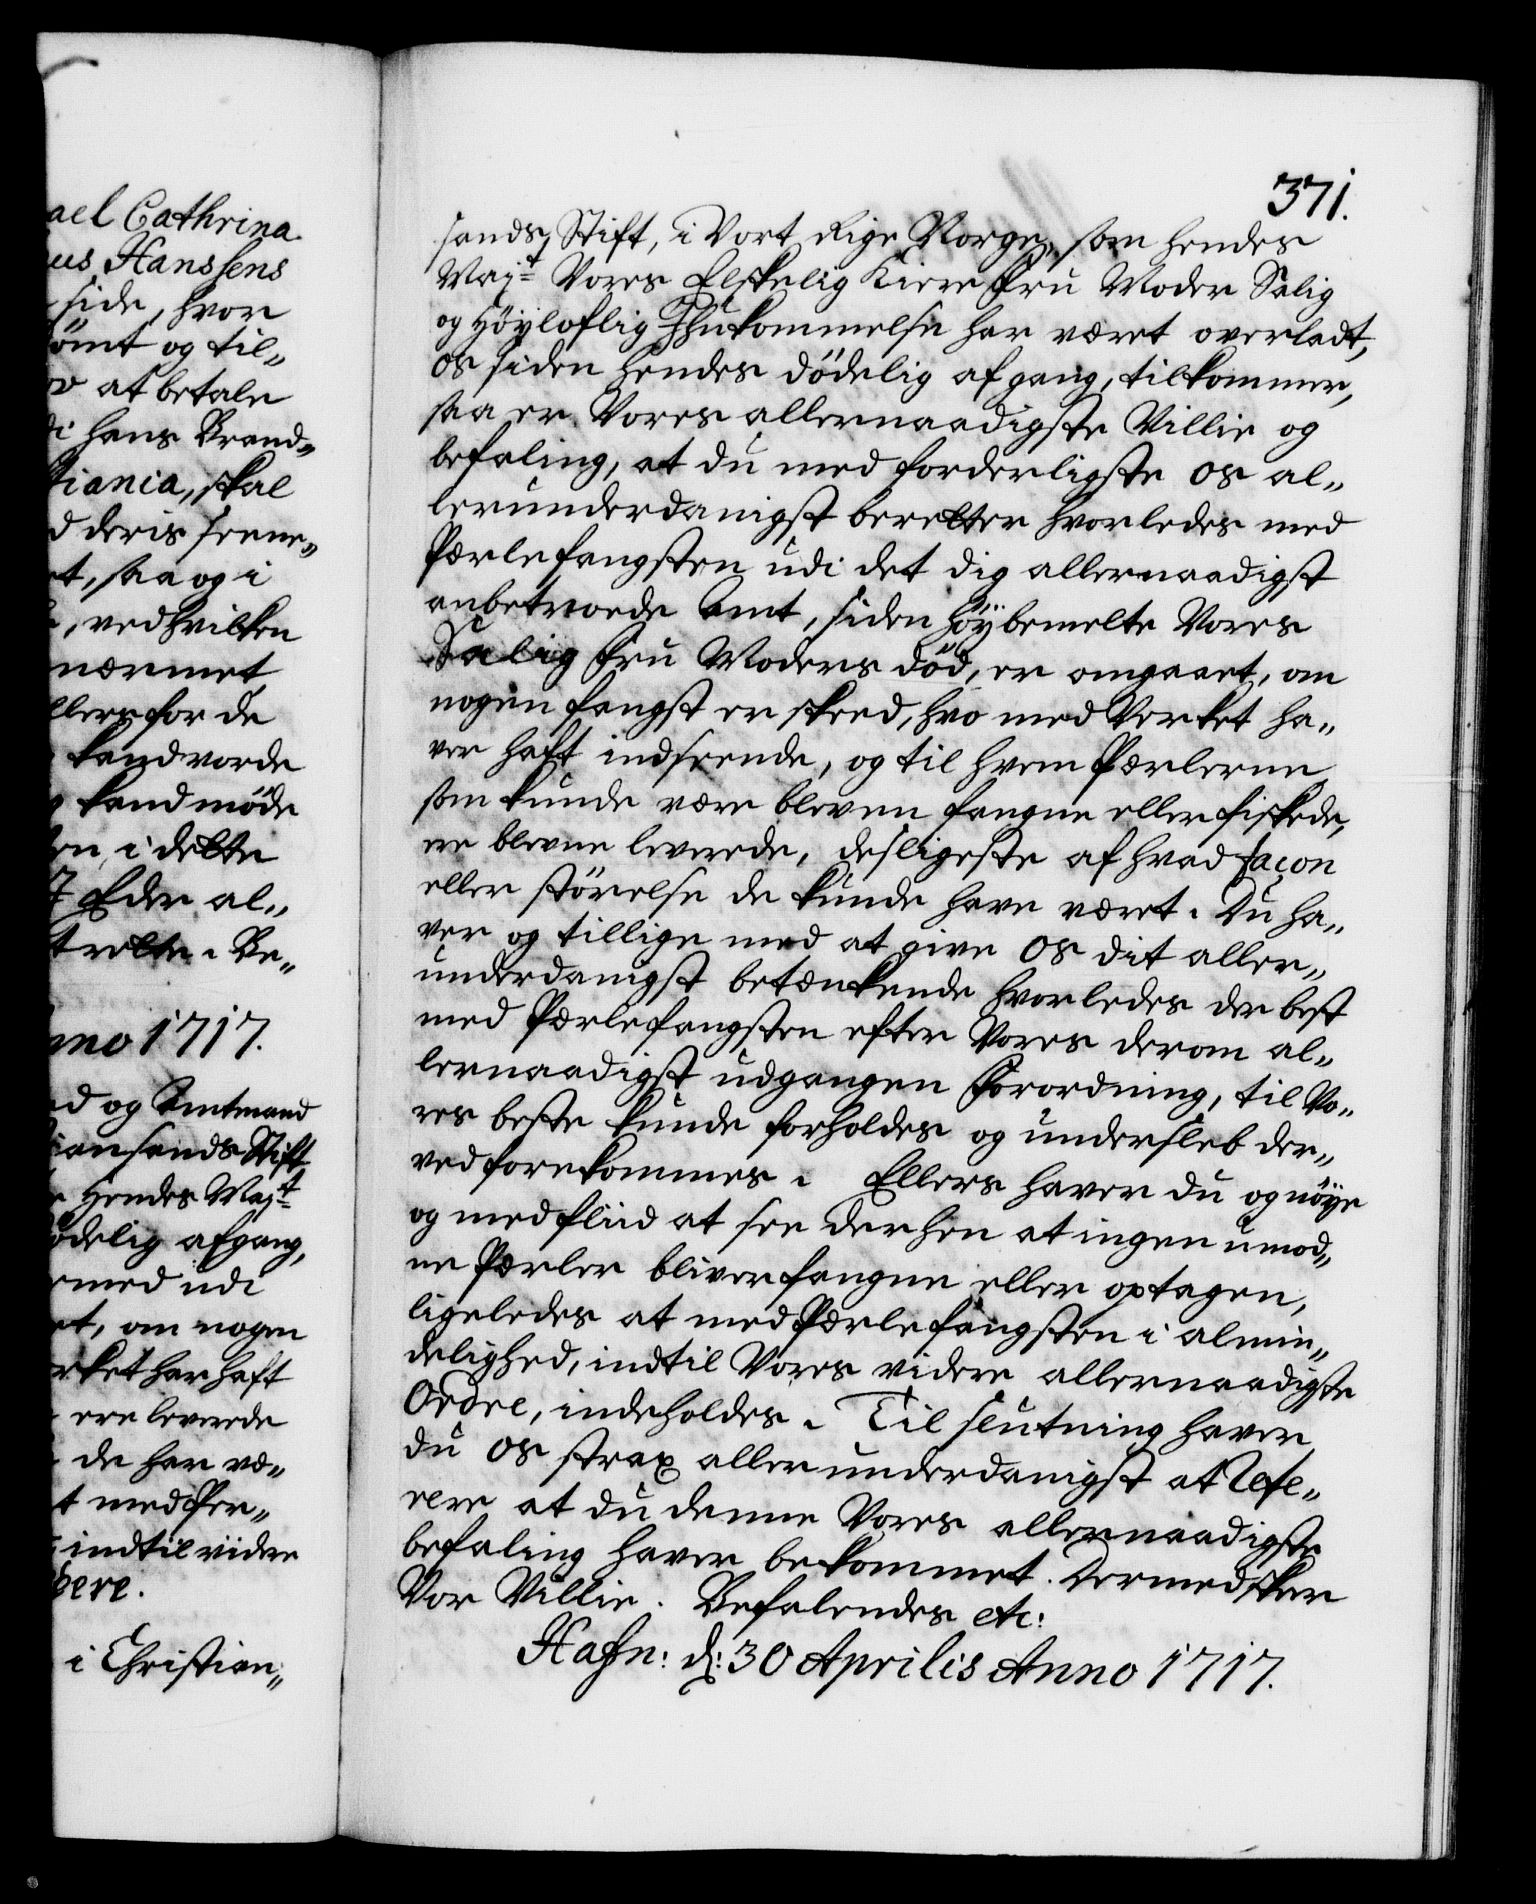 ael Cathrina
us Hanssens
side, hvor
ömt og til„
at betale
i hans Brand„
tiania, skal
d deris seene„
t, saa og i
, ved hvilken
nermet
llers for de
kand vorde
kand möde
en i dette
7 Eder al„
t rette. Be„
nno 1717.
d og Amtmand
iansands Stift
Hendes Maj:t
ödelig afgang,
med udi
et, om nogen
rket har haft
ere leverede
de har væ„
t med Per„
indtil videre
dere.
i Christian„
371.
sands Stift, i Vort Rige Norge, som hendes
Maj:t Vores Elskelig Kiere Fru Moder Salig
og Höyloflig Ihukommelse har været overladt,
os siden hendes dödelig afgang, tilkommer,
saa er Vores allernaadigste Villie og
befaling, at du med forderligste os al„
lerunderdanigst beretter hvorledes med
Perlefangsten udi det dig allernaadigst
anbetroede Amt, siden höybemelte Vores
Salig Fru Moders död, er omgaaet, om
nogen fangst er skeed, hvo med Verket ha„
ver haft indseende, og til hvem Perlerne
som kunde være bleven fangne eller fiskede,
ere blevne leverede, desligeste af hvad façon
eller störelse de kunde have været. Du ha„
ver og tillige med at give os dit aller„
underdanigst betænkende hvorledes der best
med Perlefangsten efter Vores derom al„
lernaadigst udgangen Forordning, til Vo„
res beste kunde forholdes og undersleb der„
ved forekommes. Ellers haver du og nöye
og med fliid at see derhen at ingen umod„
ne Perler bliver fangne eller optagen,
ligeledes at med Perlefangsten i almin„
delighed, indtil Vores videre allernaadigste
Ordre, indeholdes. Til slutning haver
du os strax allerunderdanigst at Refe„
rere at du denne Vores allernaadigste
befaling haver bekommet. Dermed skeer
Vor Villie. Befalendes etc:
Hafn: d: 30 Aprilis Anno 1717.